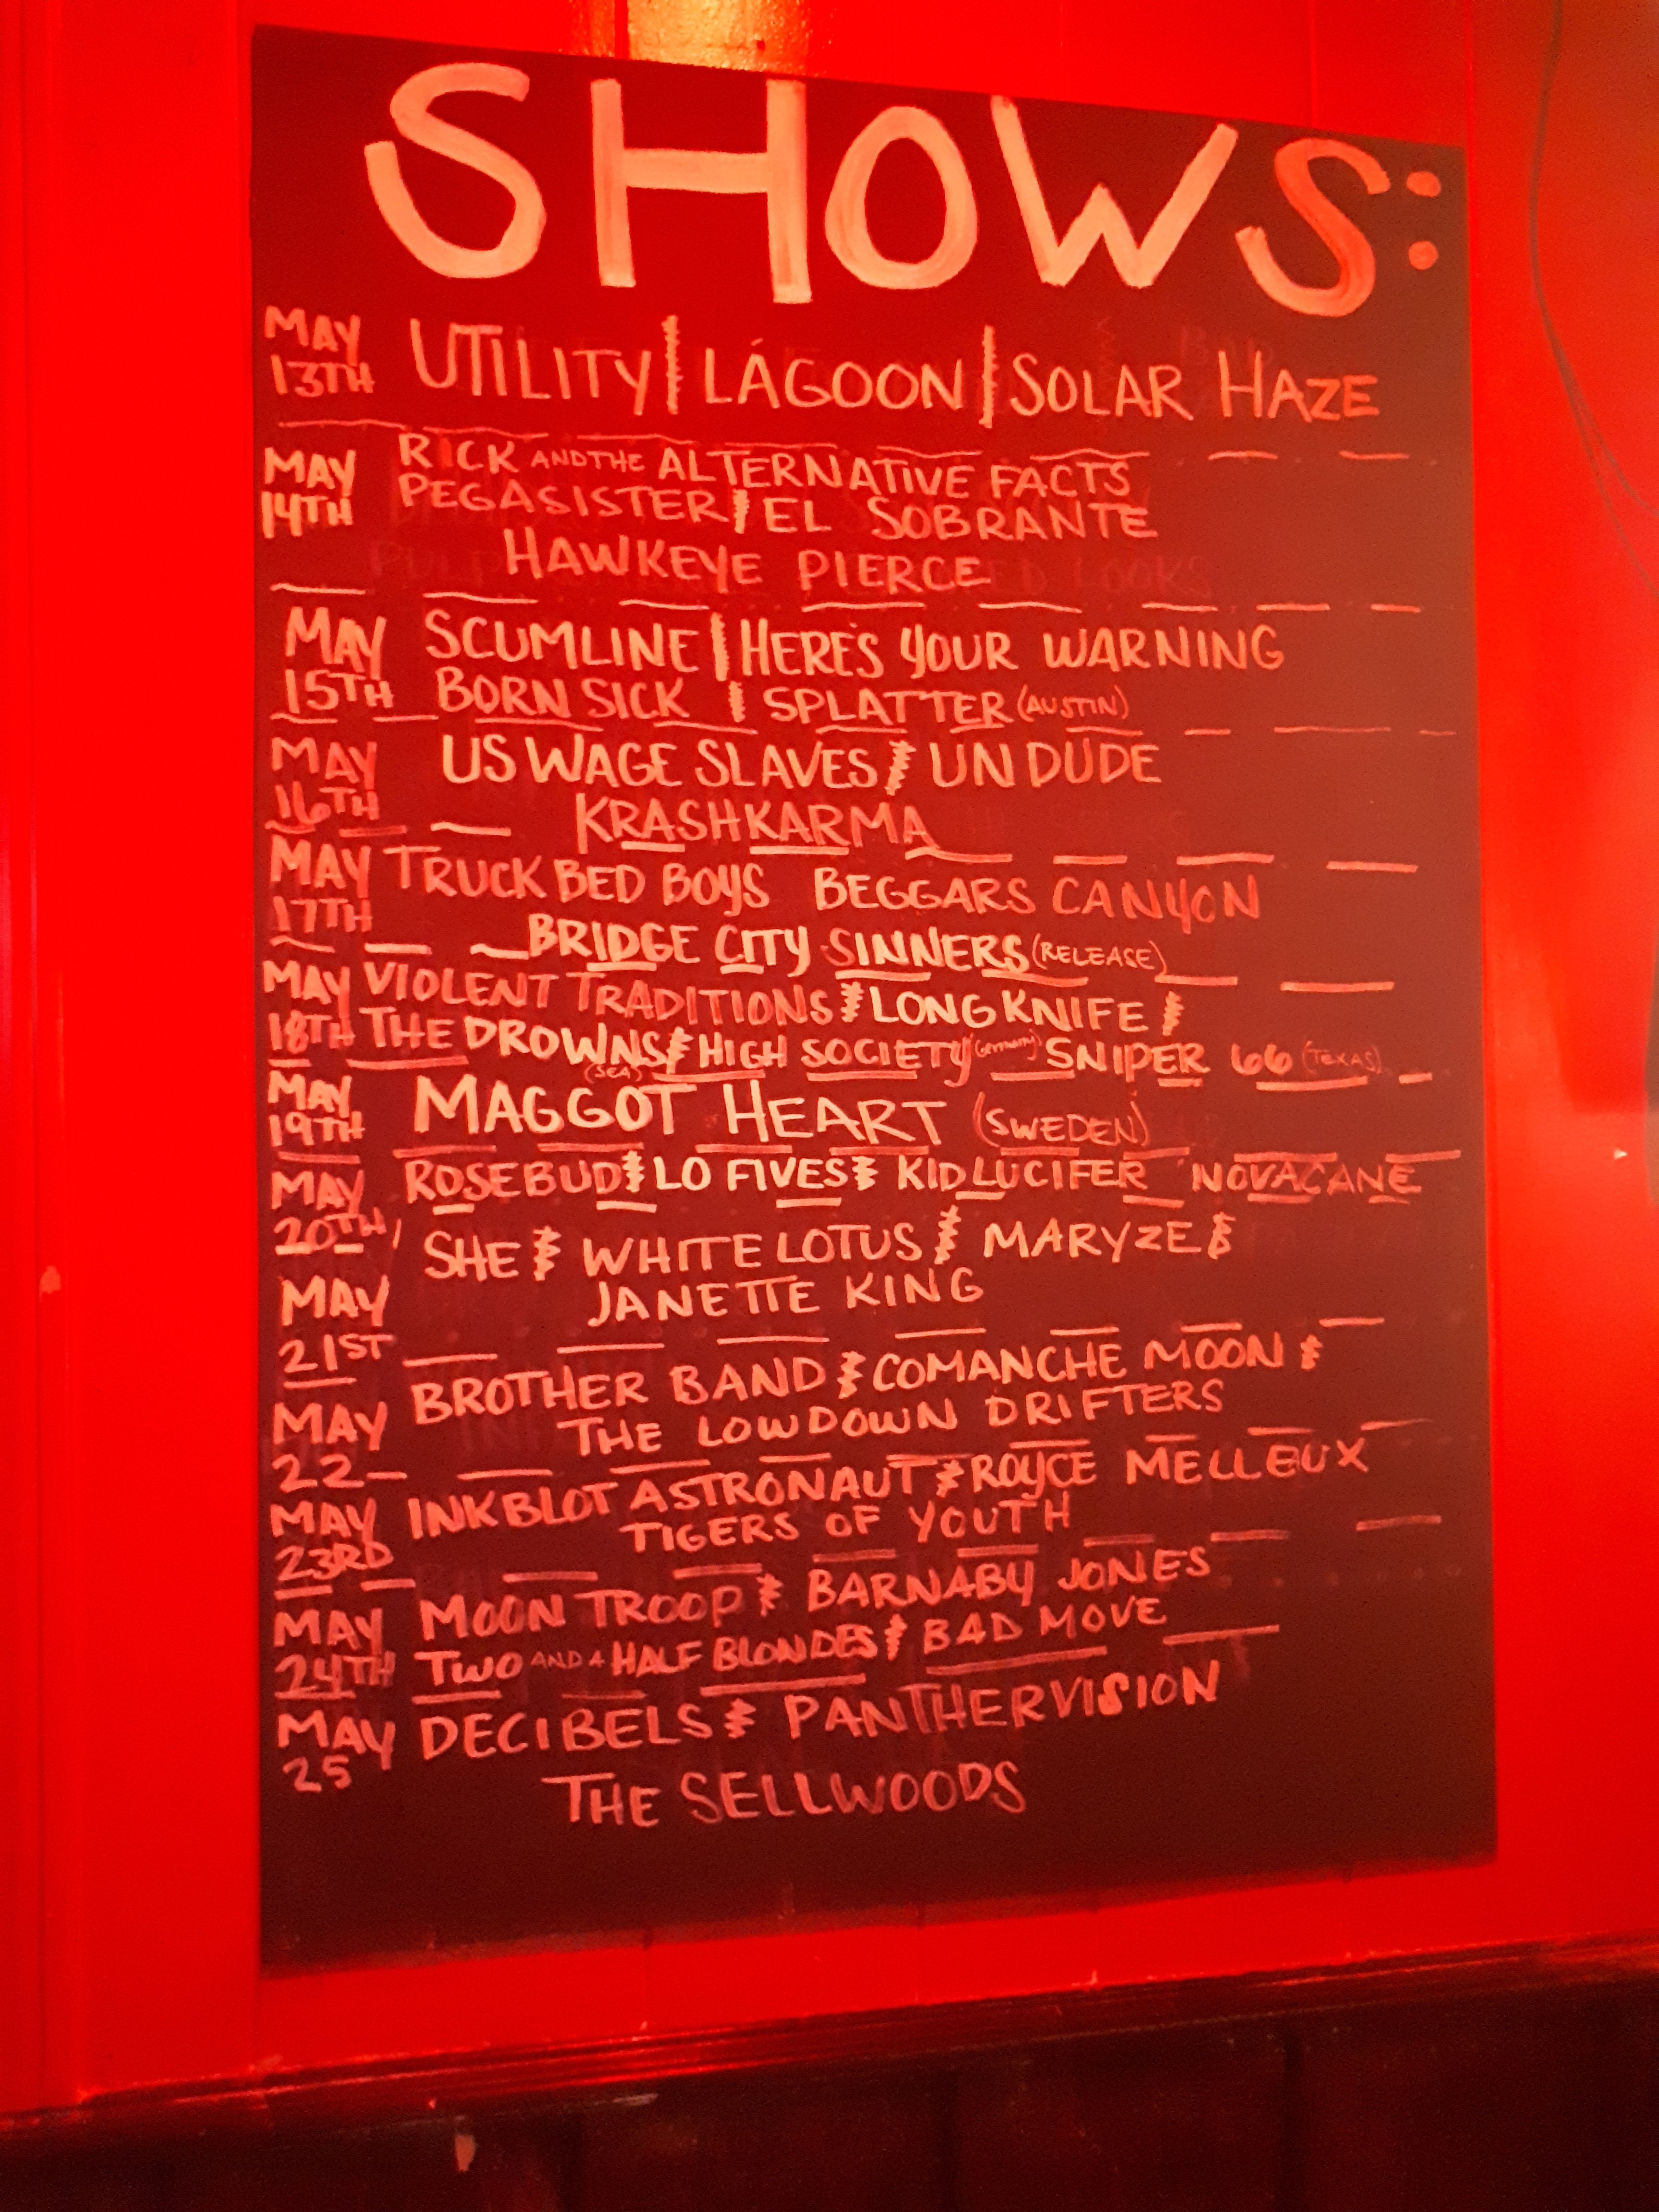 SHOWS:
MAY 13TH UTILITY | LAGOON | SOLAR HAZE
MAY 14TH RICK AND THE ALTERNATIVE FACTS
PEGASISTER | EL SOBRANTE
HAWKEYE PIERCE
MAY 15TH SCUMLINE | HERE'S YOUR WARNING
BORN SICK | SPLATTER (AUSTIN)
MAY 16TH US WAGE SLAVES | UN DUDE
KRASHKARMA
MAY 17TH TRUCK BED BOYS BEGGARS CANYON
BRIDGE CITY SINNERS (RELEASE)
MAY 18TH VIOLENT TRADITIONS | LONG KNIFE |
THE DROWNS (SEA) | HIGH SOCIETY (Germany) SNIPER 66 (TEXAS)
MAY 19TH MAGGOT HEART (SWEDEN)
MAY 20TH ROSEBUD | LO FIVES | KID LUCIFER NOVACANE
MAY 21ST SHE | WHITE LOTUS | MARYZE |
JANETTE KING
MAY 22 BROTHER BAND | COMANCHE MOON |
THE LOWDOWN DRIFTERS
MAY 23RD INKBLOT ASTRONAUT | ROYCE MELLEUX
TIGERS OF YOUTH
MAY 24TH MOON TROOP | BARNABY JONES
TWO AND A HALF BLONDES | BAD MOVE
MAY 25 DECIBELS | PANTHERVISION
THE SELLWOODS